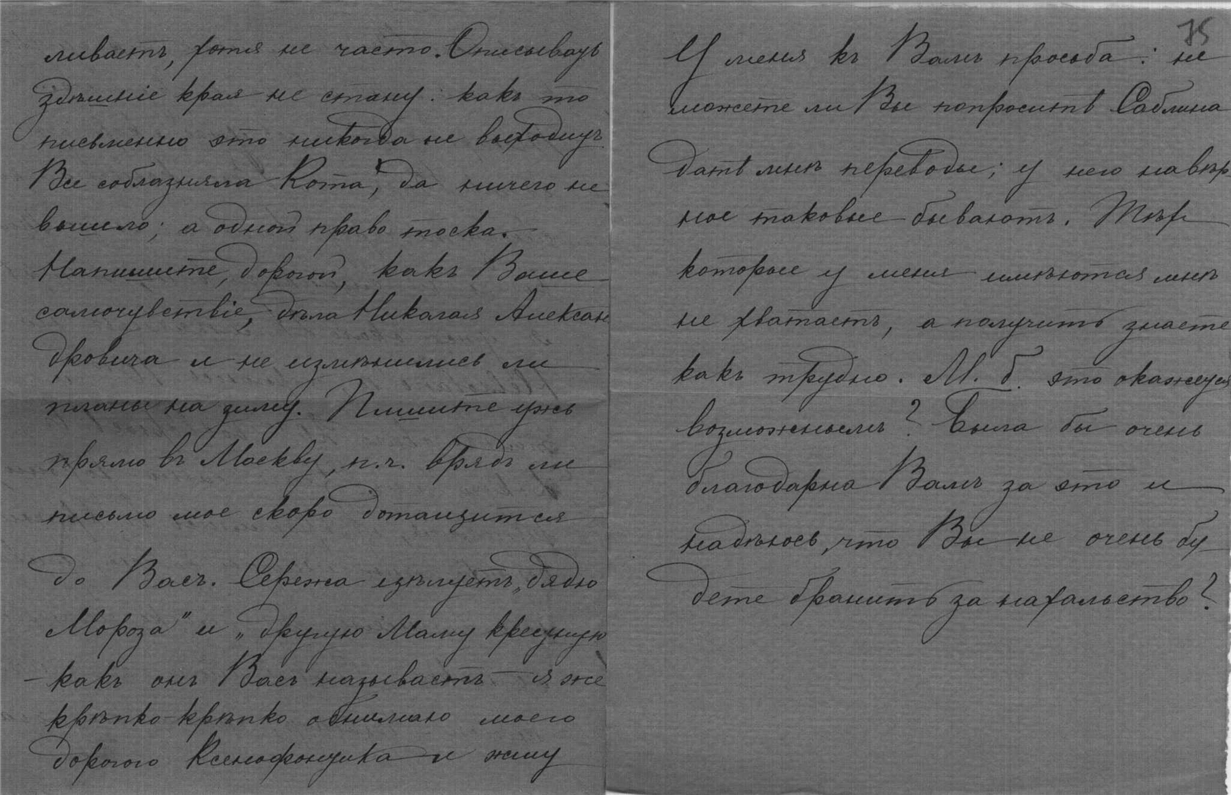 ливаетъ, хотя не часто. Описывать
здѣшніе края не стану: какъ то
письменно это никогда не выходитъ
Все соблазняла Кота, да ничего не
вышло; а одной право тоска.
Напишите, дорогой, какъ Ваше
самочувствіе, дѣла Николая Алексан
дровича и не измѣнились ли
планы на зиму. Пишите ужъ
прямо въ Москву, п.ч. врядъ ли
письмо мое скоро дотащится
до Васъ. Сережа цѣлуетъ „дядю
Мороза" и „другую Маму крестную
– какъ онъ Васъ называетъ – я же
крѣпко-крѣпко обнимаю моего
дорогого Ксенофонтика и жму
75
У меня къ Вамъ просьба: не
можете ли Вы попросить Саблина
дать мнѣ переводы; у него навѣр
ное таковые бываютъ. Тѣхъ
которые у меня имѣются мнѣ
не хватаетъ, а получить знаете
какъ трудно. М. б. это окажется
возможнымъ? Была бы очень
благодарна Вамъ за это и
надѣюсь, что Вы не очень бу
дете бранить за нахальство?